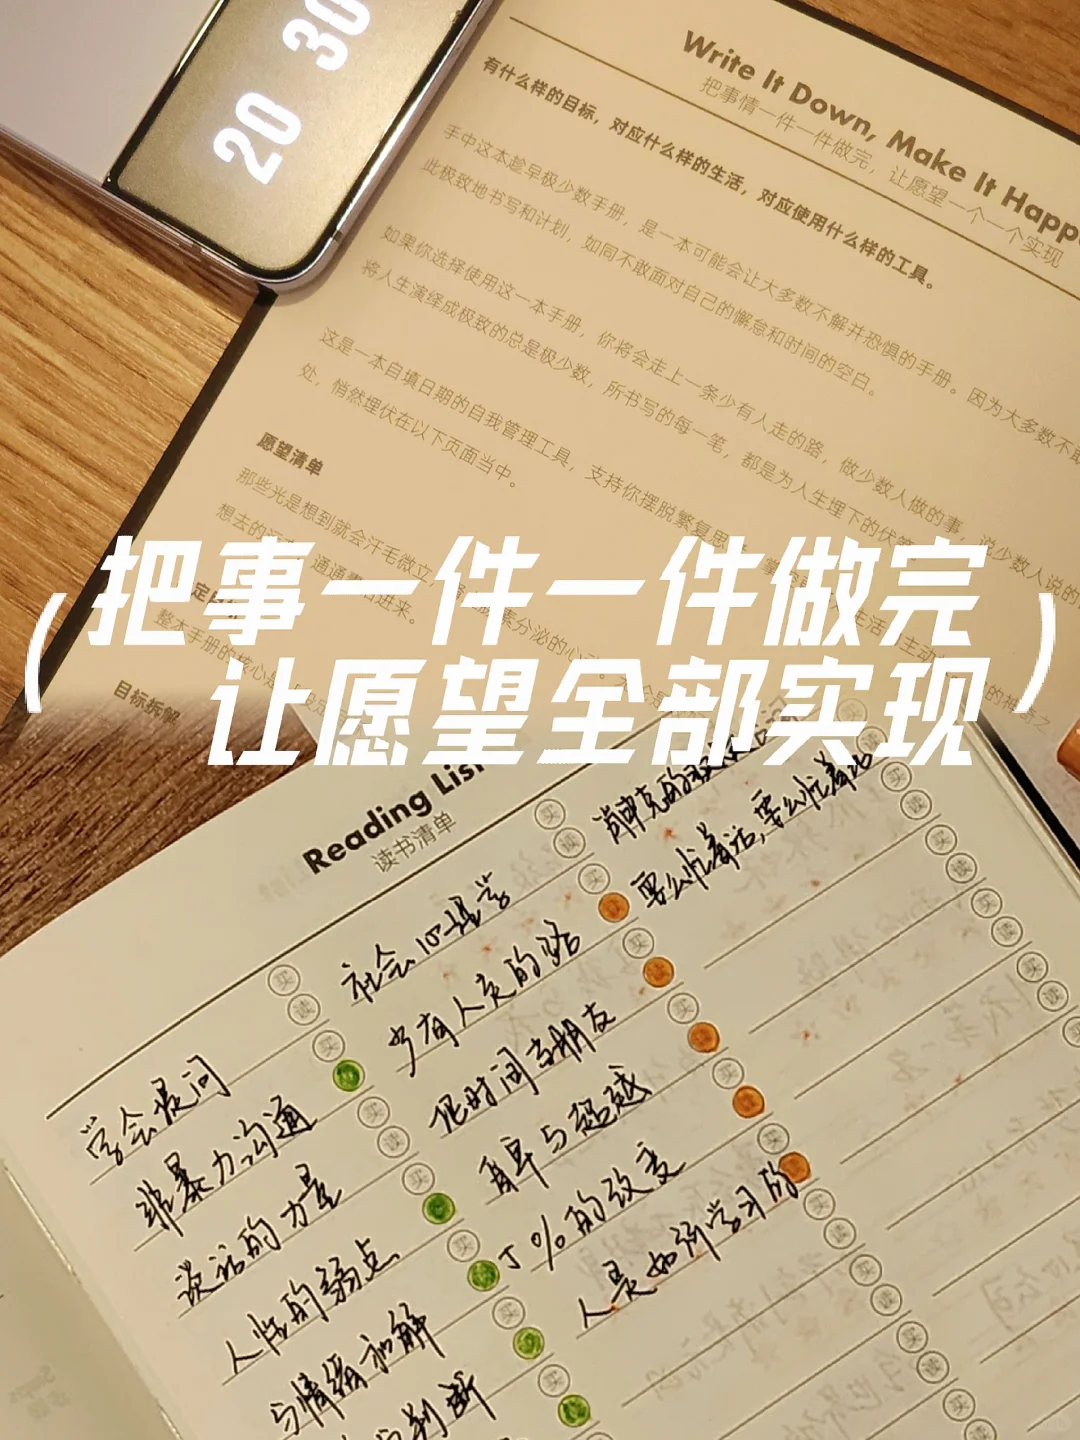 20 30
Write It Down, Make It Happ
把事情一件一件做完，让愿望一个一个实现
有什么样的目标，对应什么样的生活，对应使用什么样的工具。
手中这本趁早极少数手册，是一本可能会让大多数不解并恐惧的手册。因为大多数不敢
此极致地书写和计划，如同不敢面对自己的懈怠和时间的空白。
如果你选择使用这一本手册，你将会走上一条少有人走的路，做少数人做的事，说少数人说的
将人生演绎成极致的总是极少数，所书写的每一笔，都是为人生埋下的伏笔
这是一本自填日期的自我管理工具，支持你摆脱繁复思
处，悄然埋伏在以下页面当中。
愿望清单
那些光是想到就会汗毛微立
想去的
通通
进来。
整本手册的核心是
目标拆解
(把事一件一件做完
让愿望全部实现)
Reading List
读书清单
学会提问
非暴力沟通
谈话的力量
人性的弱点
与情绪和解
判断
社会心理学
少有人走的路
把时间当朋友
自卑与超越
5%的改变
人是如何学习的
肖申克的
要么忙着活，要么忙着死
买
读